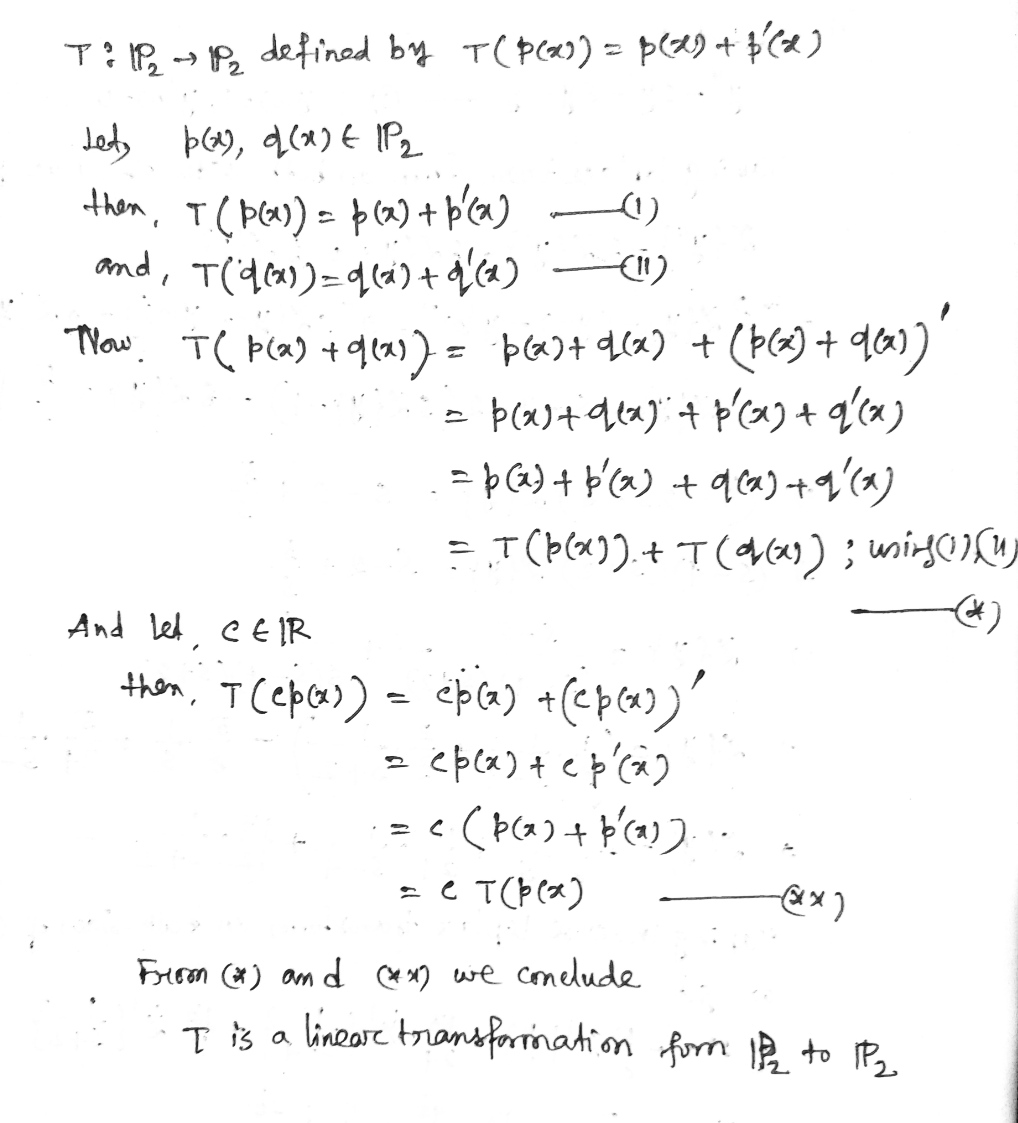 T : ℙ₂ → ℙ₂ defined by T(p(x)) = p(x) + p'(x)
Let, p(x), q(x) ∈ ℙ₂
then, T(p(x)) = p(x) + p'(x) —(i)
and, T(q(x)) = q(x) + q'(x) —(ii)
Now. T(p(x) + q(x)) = p(x) + q(x) + (p(x) + q(x))'
= p(x) + q(x) + p'(x) + q'(x)
= p(x) + p'(x) + q(x) + q'(x)
= T(p(x)) + T(q(x)) ; using (i) & (ii)
—(*)
And let, c ∈ ℝ
then, T(cp(x)) = cp(x) + (cp(x))'
= cp(x) + cp'(x)
= c(p(x) + p'(x))
= c T(p(x) —(**)
From (*) and (**) we conclude
T is a linear transformation form ℙ₂ to ℙ₂